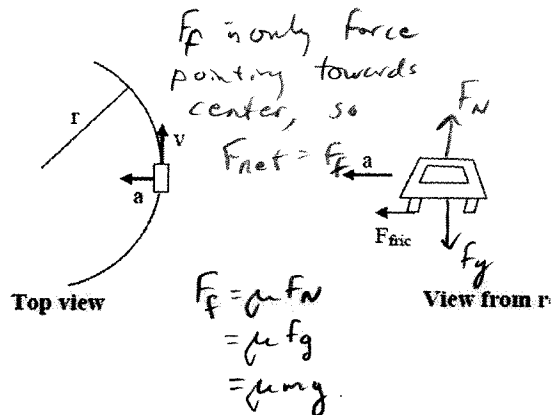 F_f is only force
pointing towards
center, so
F_net = F_f
r
v
a
a
F_N
F_fric
F_g
Top view
View from r
F_f = μ F_N
= μ F_g
= μ m g.